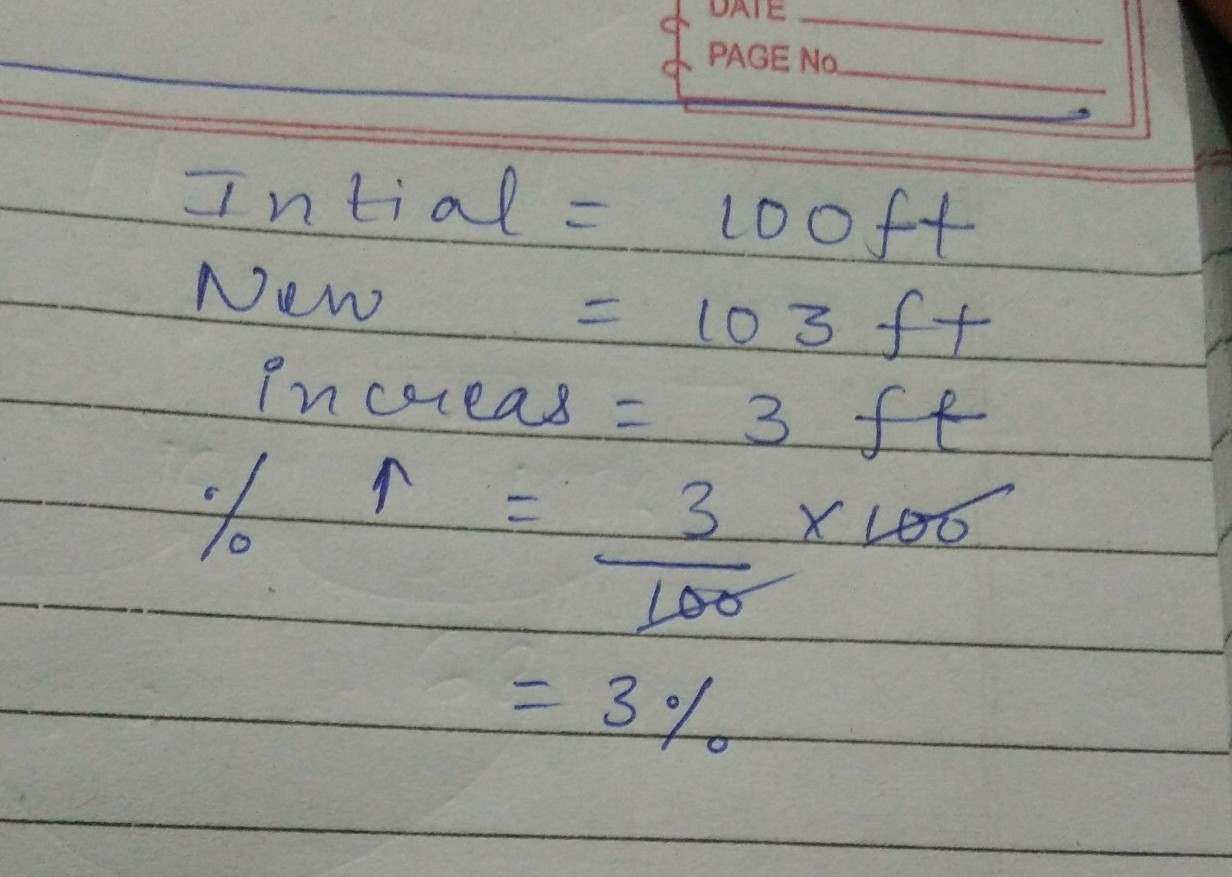 DATE
PAGE No.
Intial = 100ft
New = 103 ft
increas = 3 ft
% ↑ = 3/100 × 100
= 3%